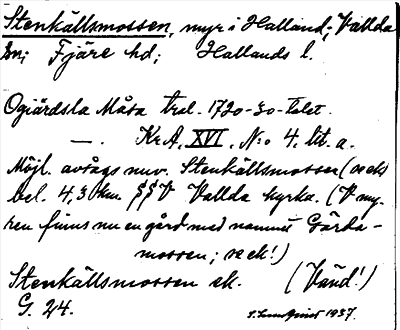 Stenkällsmossen, myr i Halland; Vallda
sn; Fjäre hd; Hallands l.
Ogiärdsla Måsa trol. 1720-30-talet.
— . Kr.A. XVI. N:o 4. lit. a.
Möjl. avsågs nuv. Stenkällsmossen (se ek)
bel. 4,3 km. V Vallda kyrka. (V my-
ren finns nu en gård med namnet Gärda-
mossen; se ek!)
Stenkällsmossen ek. (Vänd!)
G. 24. 1937.